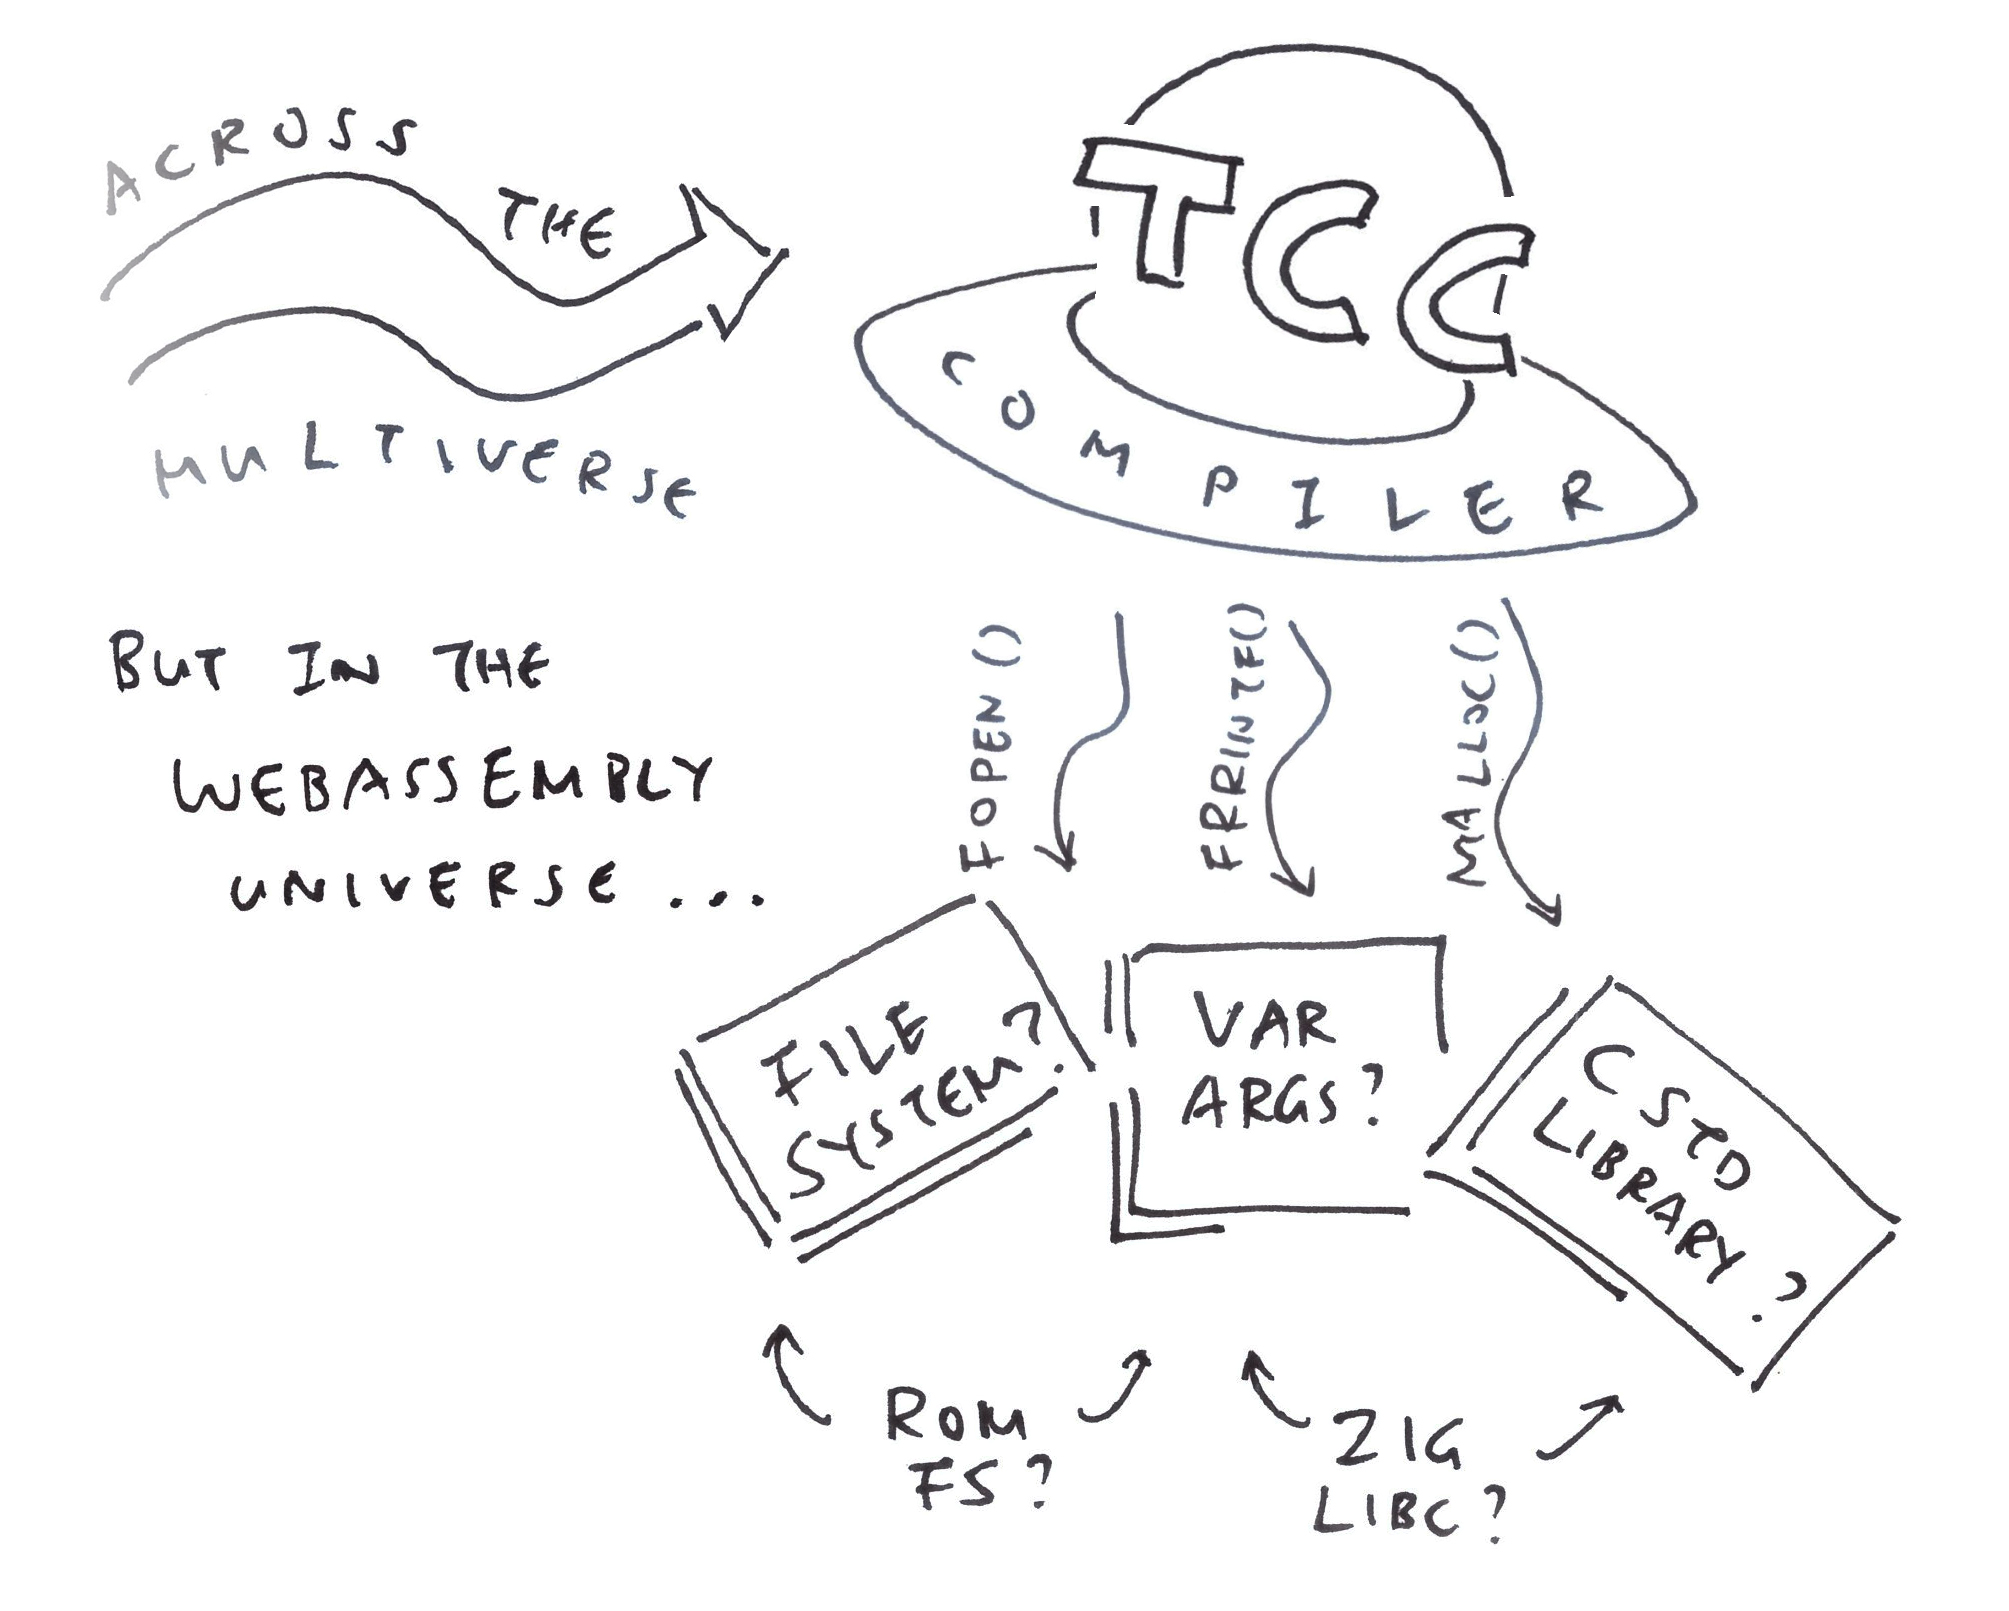 ACROSS
THE
MULTIVERSE
TCC
COMPILER
BUT IN THE
WEBASSEMBLY
UNIVERSE ...
FOPEN()
FRRINTF()
MALLOC()
FILE
SYSTEM?
VAR
ARGS?
C STD
LIBRARY?
ROM
FS?
ZIG
LIBC?